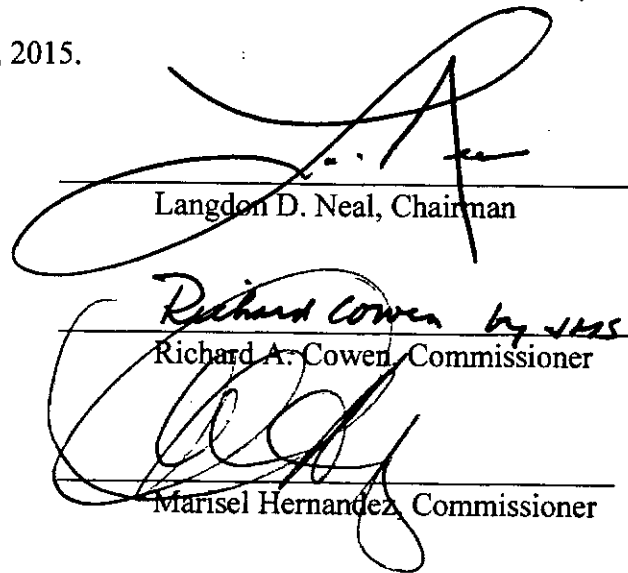 2015.
Langdon D. Neal, Chairman
Richard Cowen by JMS
Richard A. Cowen, Commissioner
Marisel Hernandez, Commissioner